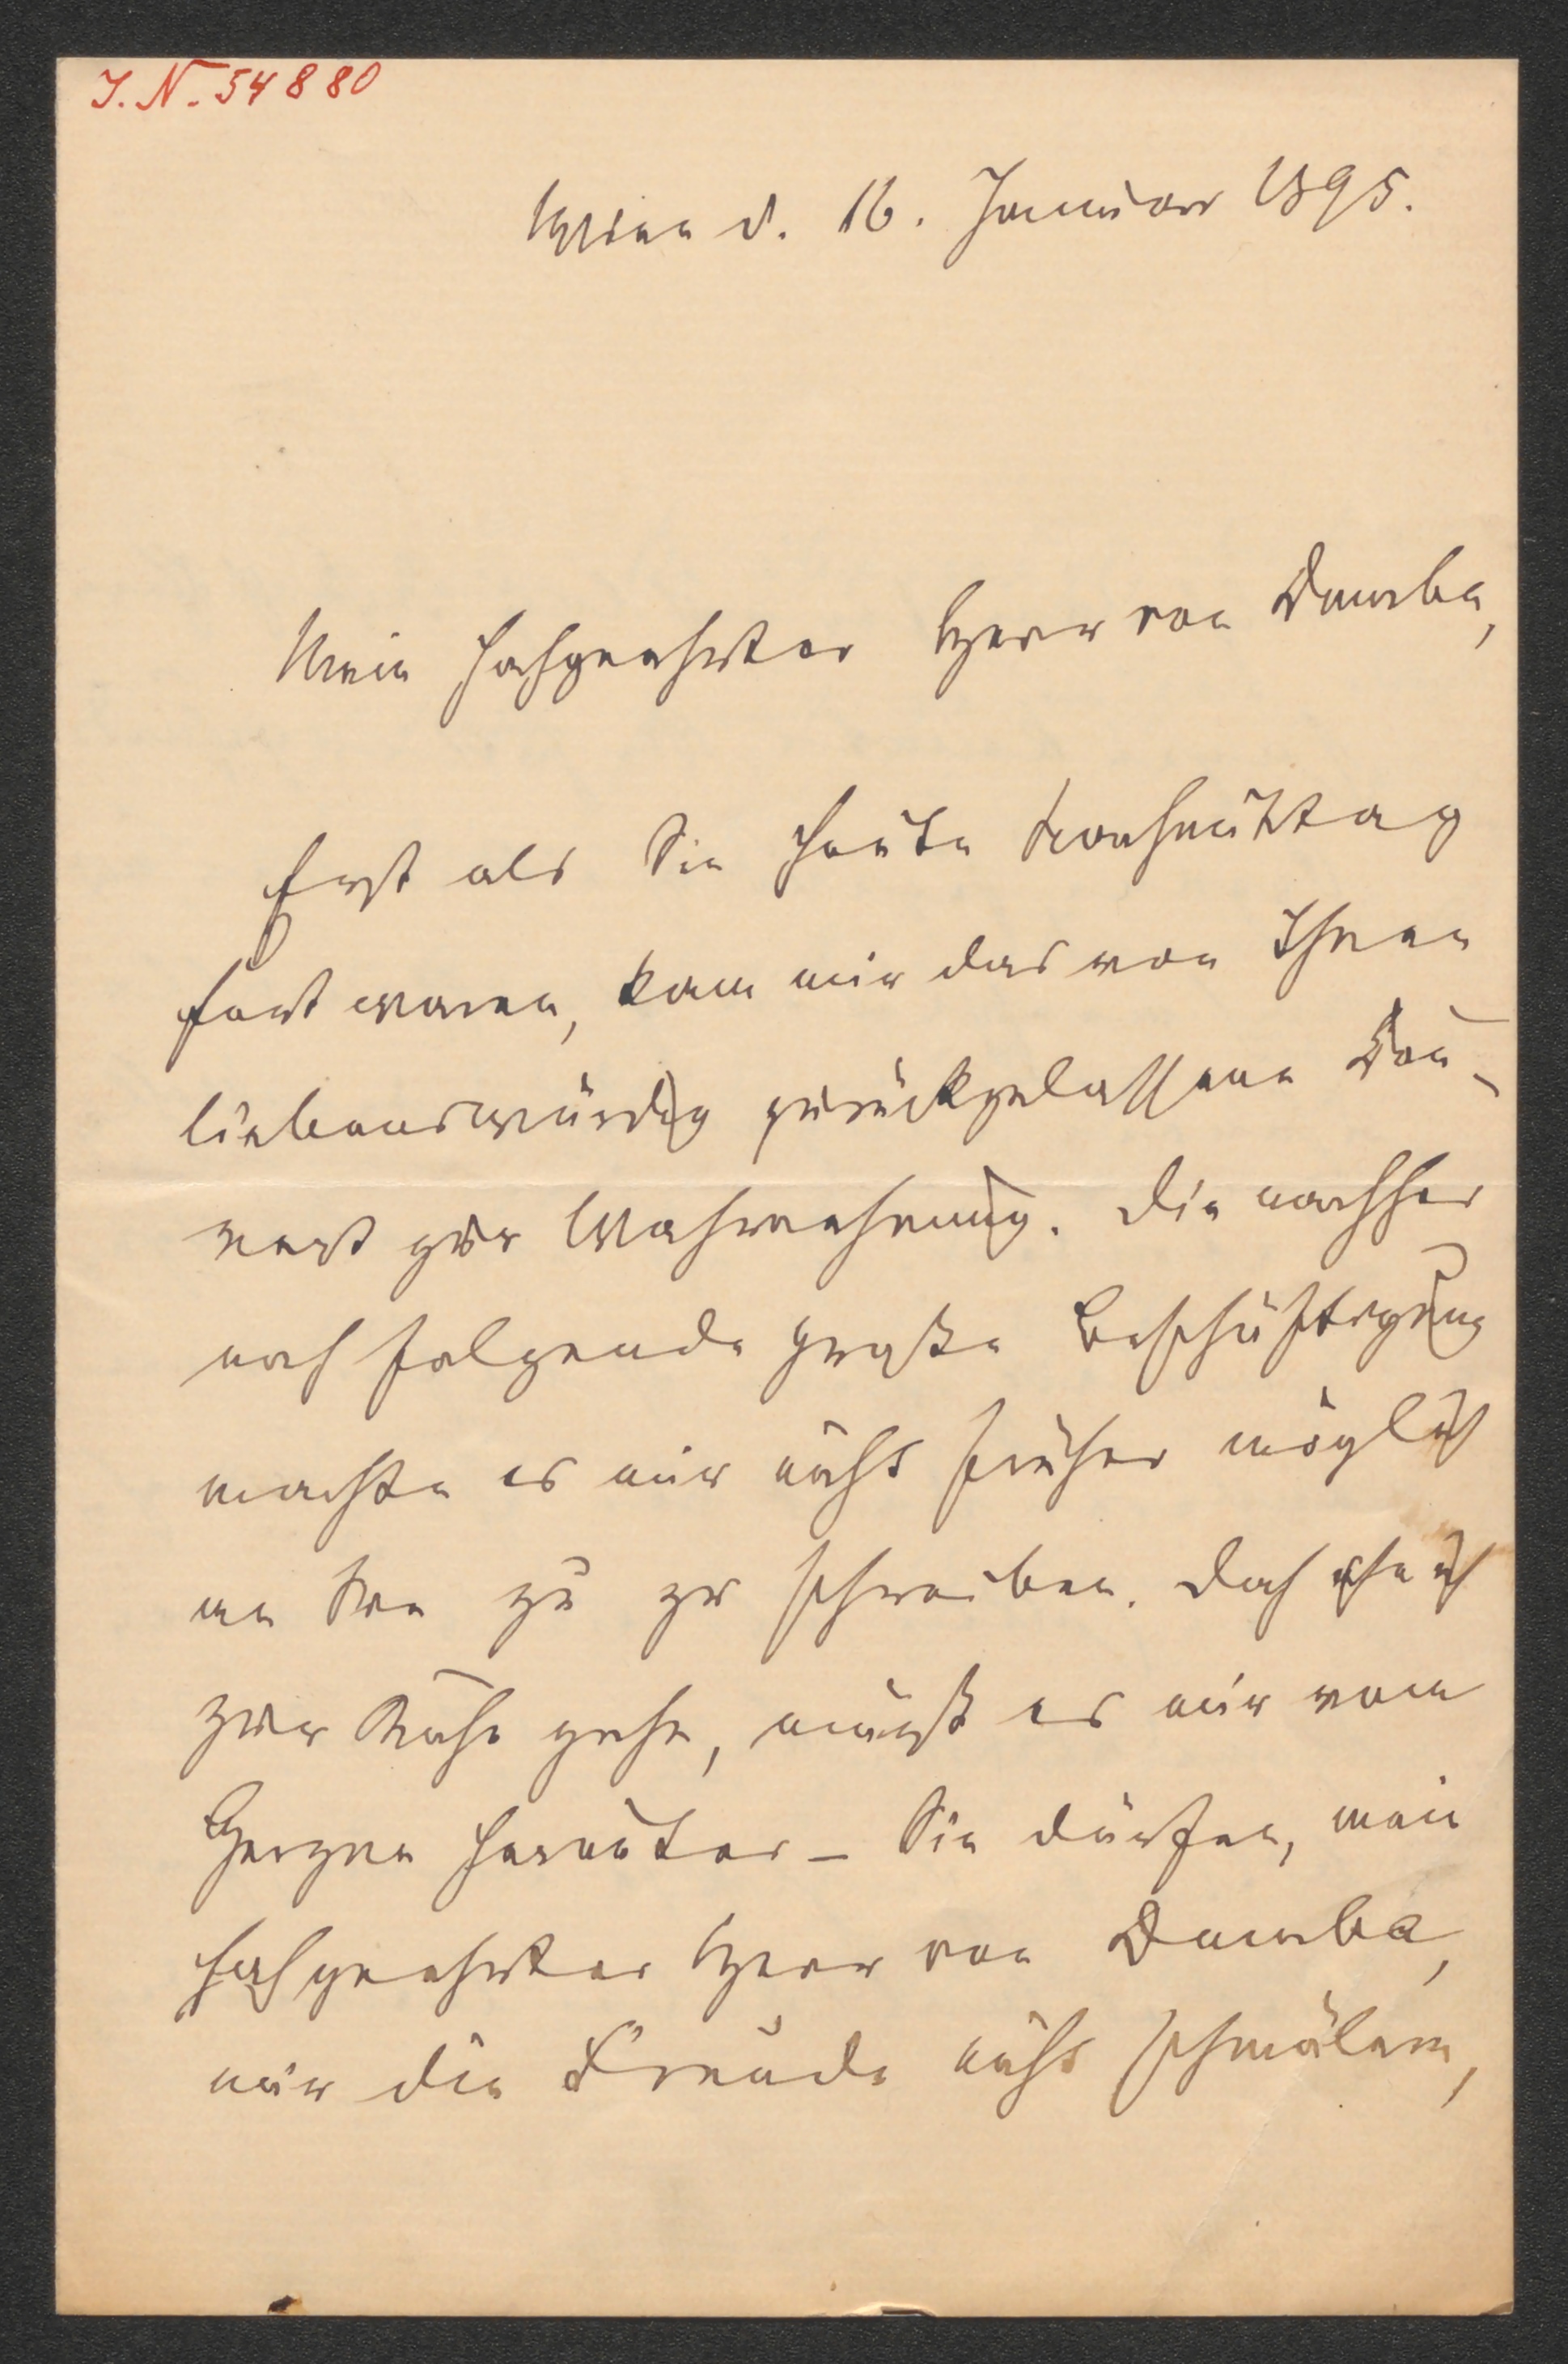 I. N. 54880
Wien d. 16. Januar 1895.
Mein hochgeehrter Herr von Dumba,
Erst als Sie heute Nachmittag
fort waren, kam mir das von Ihnen
liebenswürdig zurückgelassene Cou-
vert zur Wahrnehmung. Die nachher
noch folgende große Beschäftigung
machte es mir nicht früher möglich
an Sie zu zu schreiben. Doch ehe ich
zur Ruhe gehe, muß es mir vom
Herzen herunter – Sie dürfen, mein
hochgeehrter Herr von Dumba,
mir die Freude nicht schmälern,